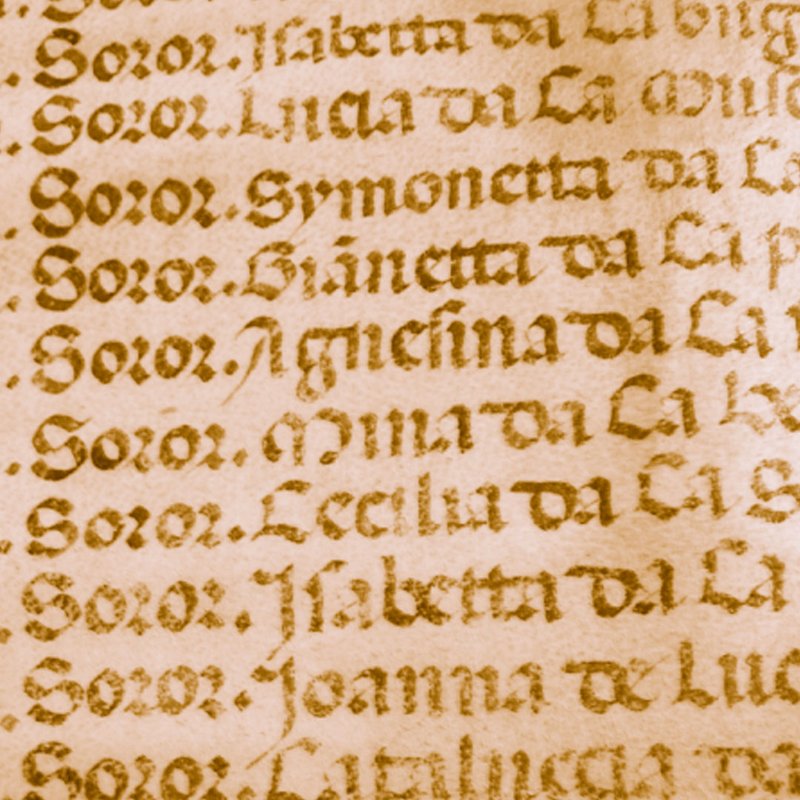 . Soror. Isabetta da La
. Soror. Lucia da La
. Soror. Symonetta da La
. Soror. Giānetta da La
. Soror. Agnesina da La
. Soror. Mina da La
. Soror. Cecilia da La
. Soror. Isabetta da La
. Soror. Joanna de Luc
Soror. Cataluccia da